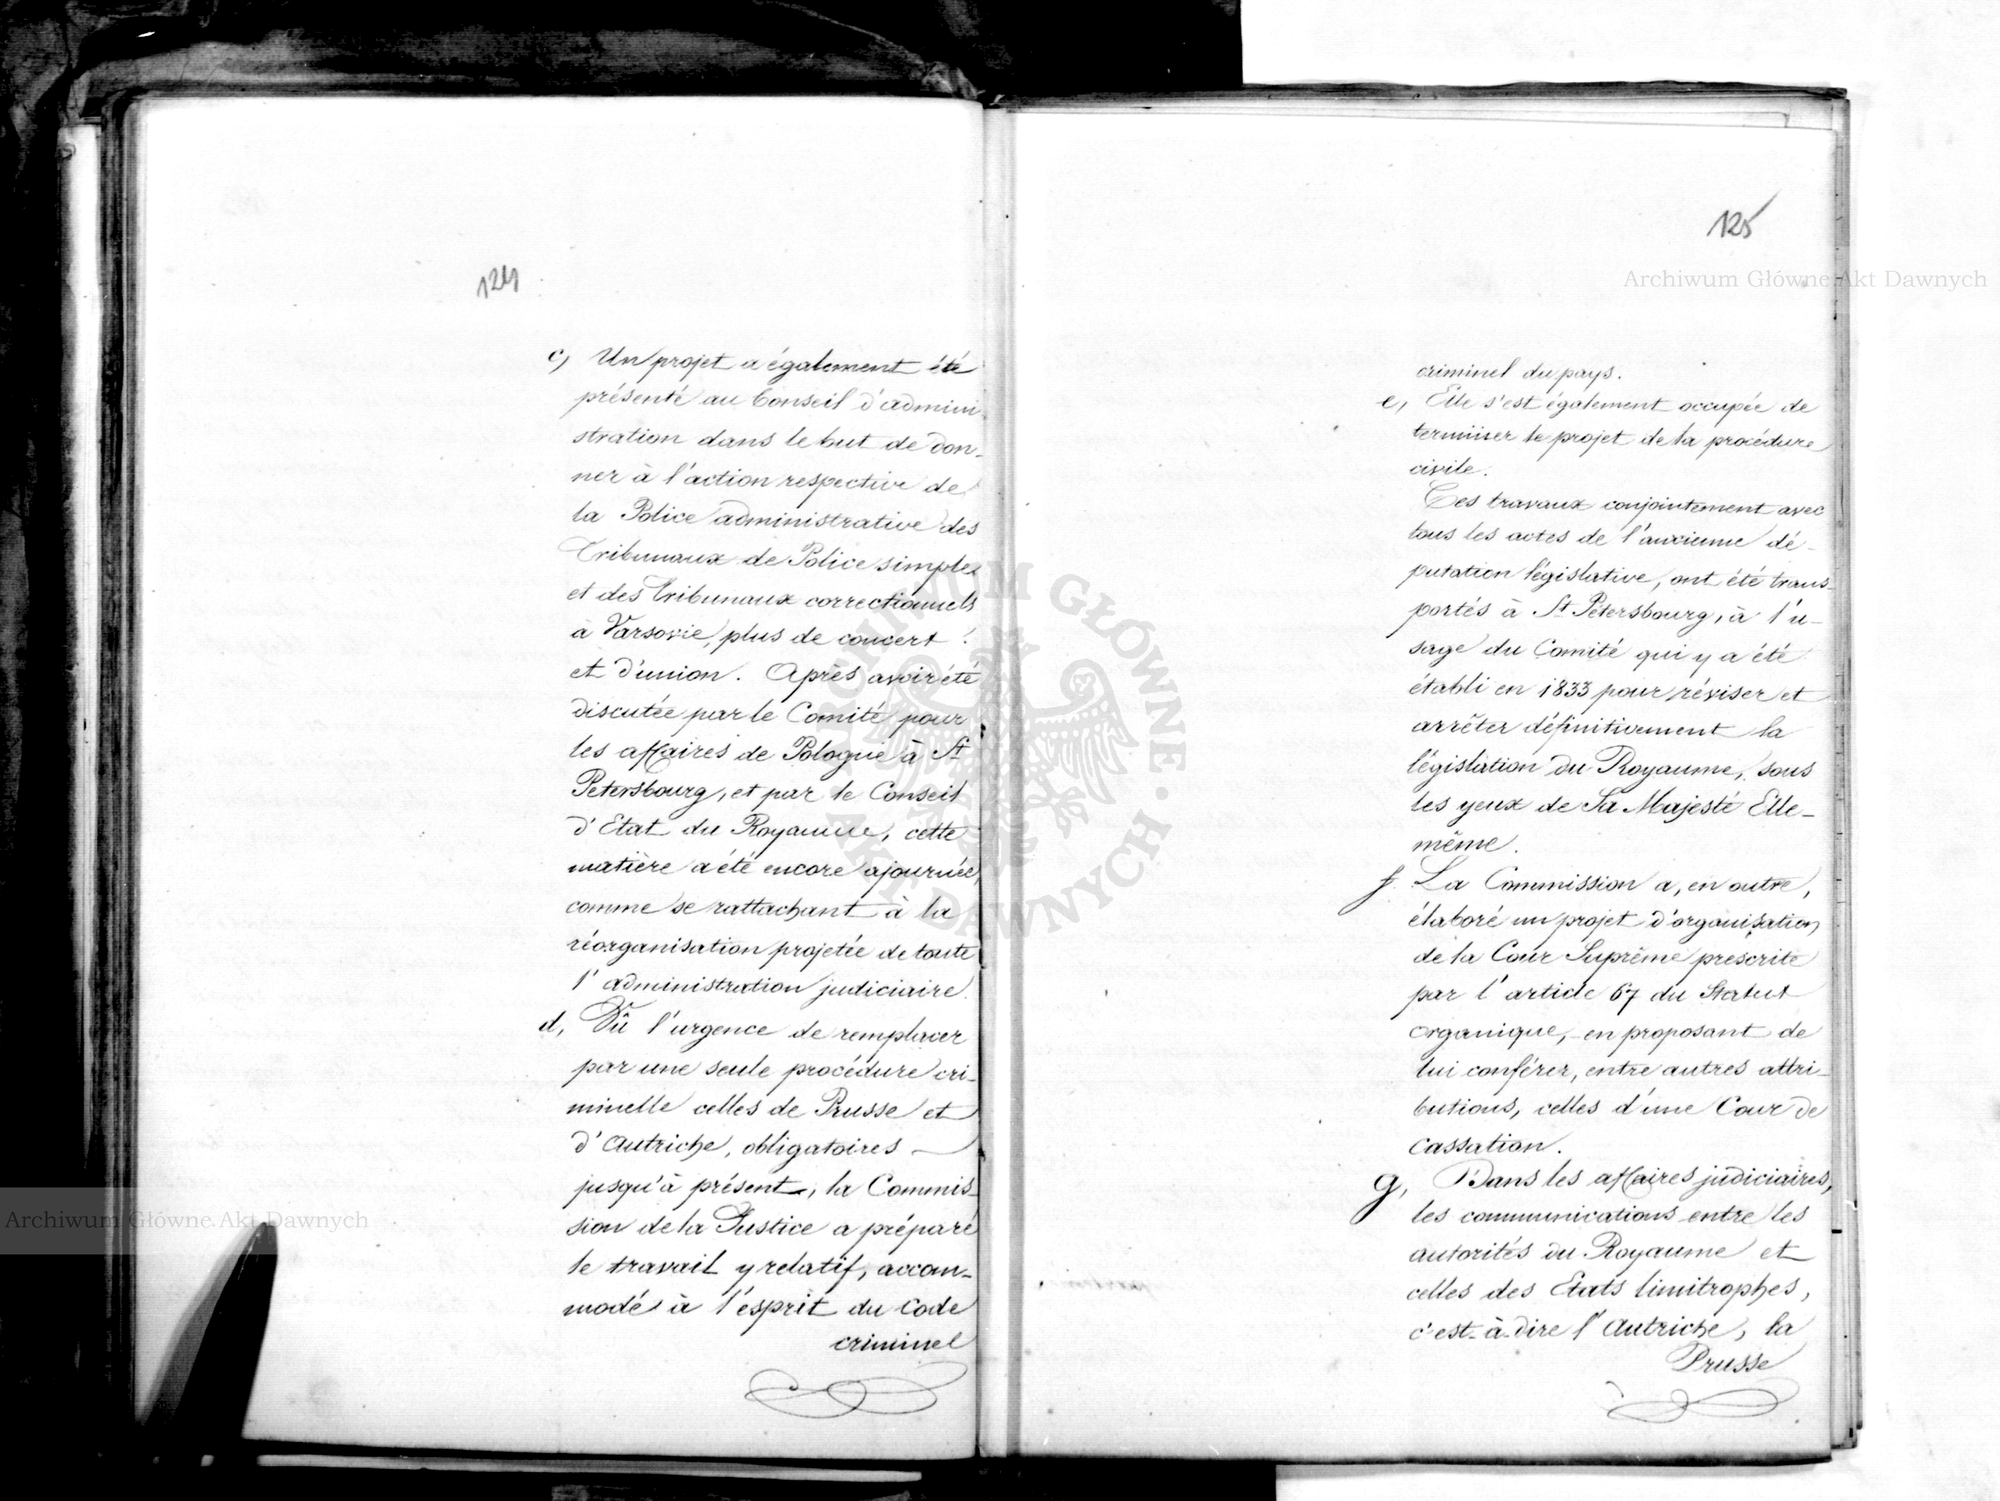 124
c) Un projet a également été
présenté au Conseil d'admini-
stration dans le but de don-
ner à l'action respective de
la Police administrative des
Tribunaux de Police simple
et des Tribunaux correctionnels
à Varsovie, plus de concert
et d'union. Après avoir été
discutée par le Comité pour
les affaires de Pologne à St
Petersbourg, et par le Conseil
d'Etat du Royaume, cette
matière a été encore ajournée,
comme se rattachant à la
réorganisation projetée de toute
l'administration judiciaire.
d, Vû l'urgence de remplacer
par une seule procédure cri-
minelle celles de Prusse et
d'Autriche, obligatoires —
jusqu'à présent, la Commis-
sion de la Justice a préparé
le travail y relatif, accom-
modé à l'esprit du Code
criminel
125
criminel du pays.
e, Elle s'est également occupée de
terminer le projet de la procédure
civile.
Ces travaux conjointement avec
tous les actes de l'ancienne dé-
putation législative, ont été trans-
portés à St Petersbourg, à l'u-
sage du Comité qui y a été
établi en 1833 pour réviser et
arrêter définitivement la
législation du Royaume, sous
les yeux de Sa Majesté Elle-
même.
f. La Commission a, en outre,
élaboré un projet d'organisation
de la Cour Suprême prescrite
par l'article 67 du Statut
organique, en proposant de
lui conférer, entre autres attri-
butions, celles d'une Cour de
cassation.
g, Dans les affaires judiciaires,
les communications entre les
autorités du Royaume et
celles des Etats limitrophes,
c'est-à-dire l'Autriche, la
Prusse
Archiwum Główne Akt Dawnych
Archiwum Główne Akt Dawnych
ARCHIWUM GŁÓWNE AKT DAWNYCH